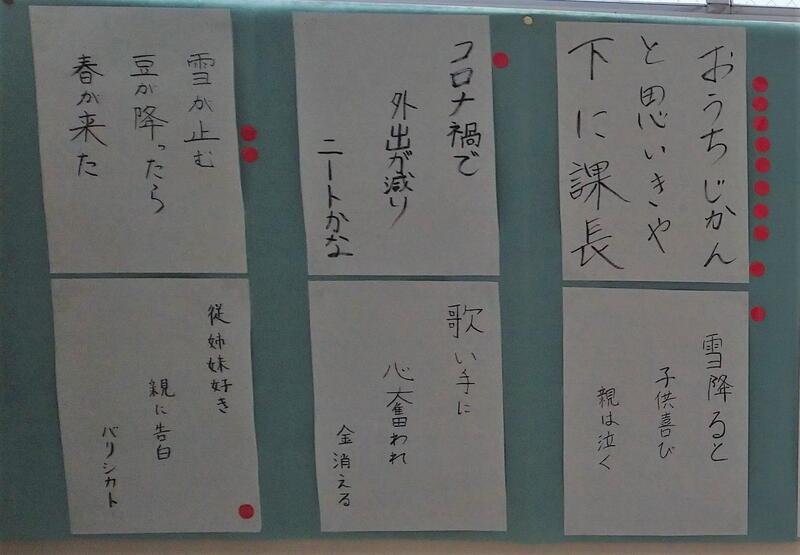 おうちじかん
と思いきや
下に課長
コロナ禍で
外出が減り
ニートかな
雪が止む
豆が降ったら
春が来た
雪降ると
子供喜び
親は泣く
歌い手に
心奮われ
金消える
従姉妹好き
親に告白
バリシカト